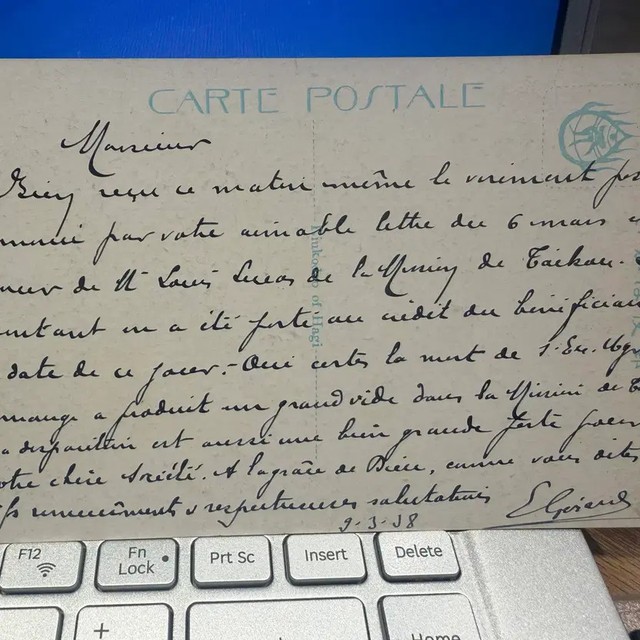 CARTE POSTALE
Monsieur
Bien reçu ce matin même le vraiment
par votre aimable lettre du 6 mars
de Mr Louis Lucas de la Mission de Taikou.
en a été porté au crédit du
date de ce jour. - Oui certes la mort de S. Ex. Mgr
a produit un grand vide dans la Mission de
disparition est aussi une bien grande perte pour
chère Société. A la grâce de Dieu, comme vous dites
remerciements & respectueuses salutations
9-3-38
of Hagi
F12
Fn
Lock
Prt Sc
Insert
Delete
+
Home